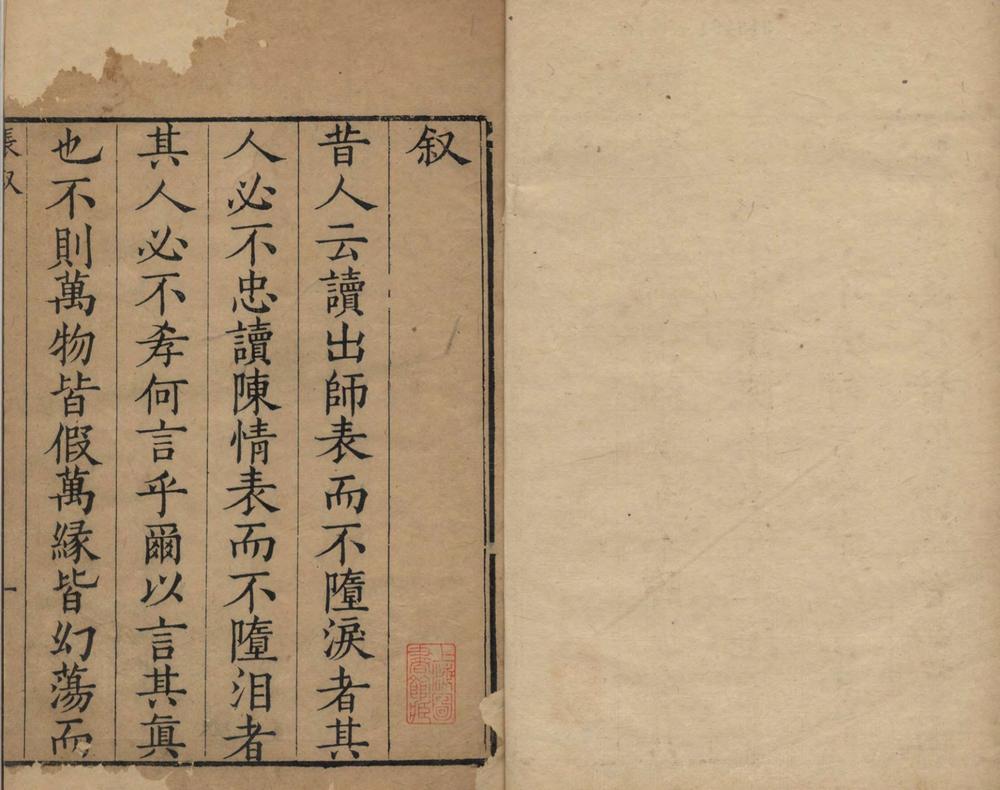 叙
昔人云讀出師表而不墮淚者其
人必不忠讀陳情表而不墮泪者
其人必不孝何言乎爾以言其眞
也不則萬物皆假萬縁皆幻蕩而